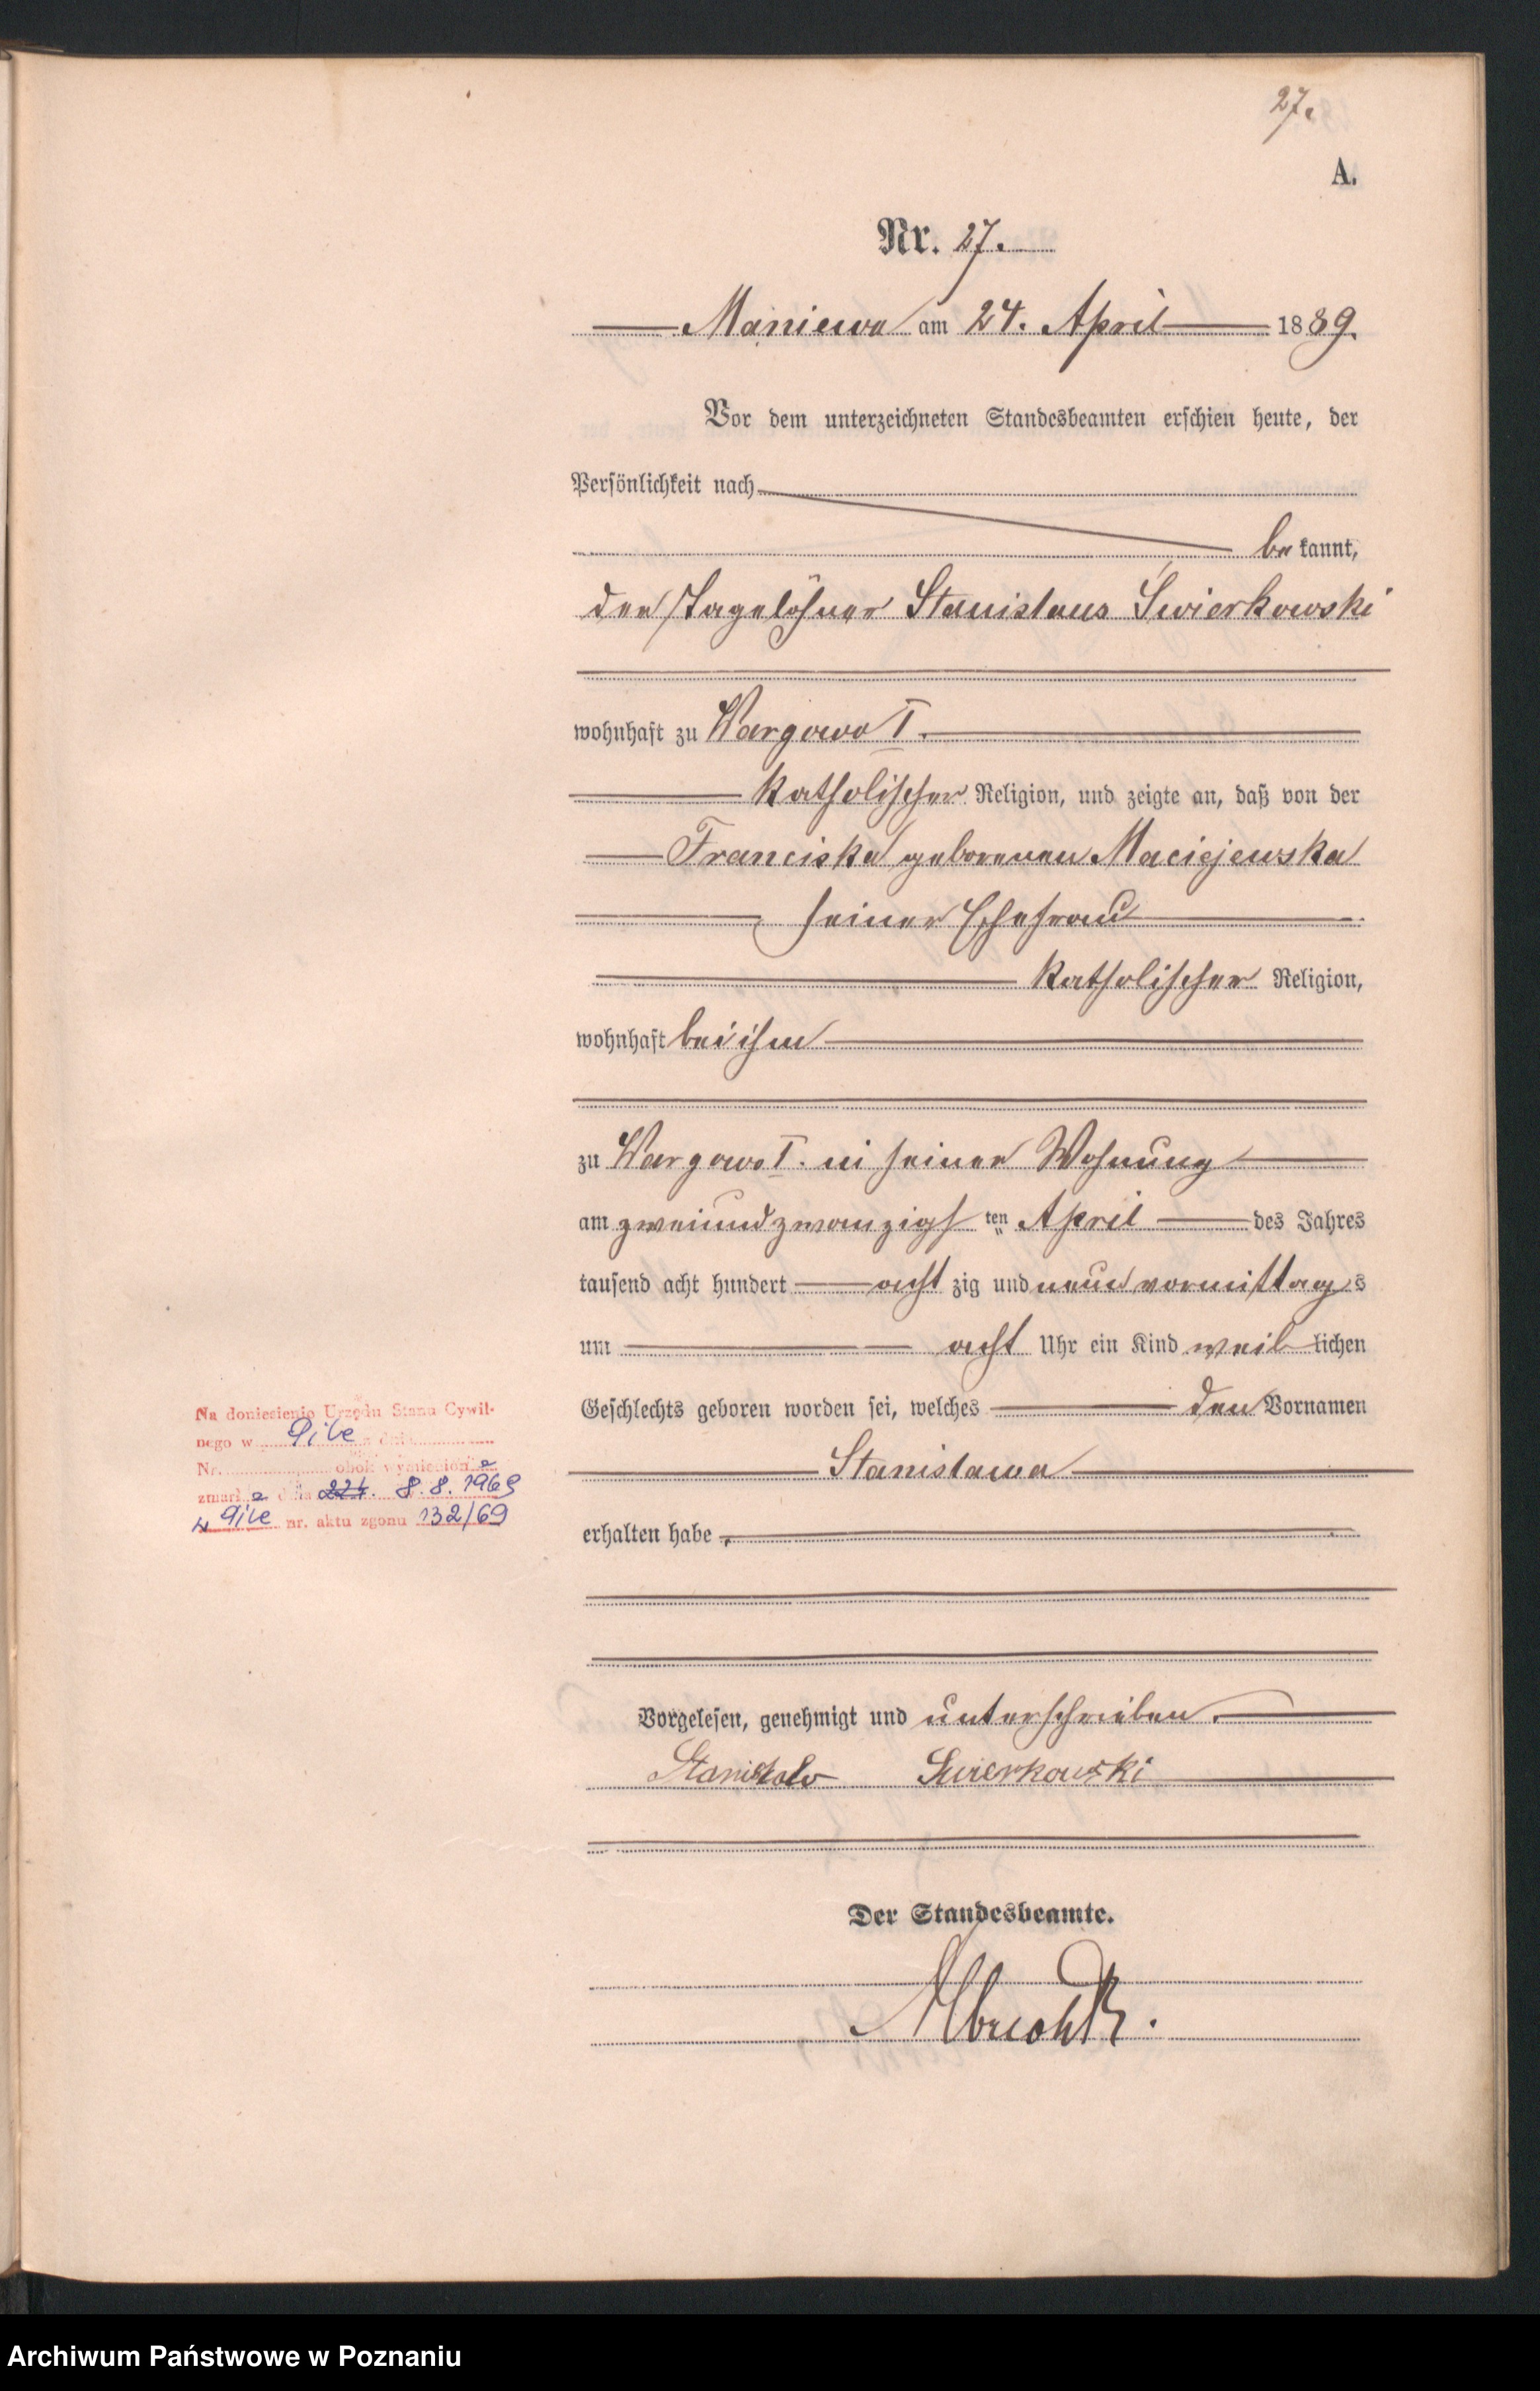 27.
A.
Nr. 27.
Maniewo am 24. April 1889.
Vor dem unterzeichneten Standesbeamten erschien heute, der
Persönlichkeit nach
be kannt,
der Tagelöhner Stanislaus Świerkowski
wohnhaft zu Wargowo I.
katholischer Religion, und zeigte an, daß von der
Franciska geborenen Maciejewska
seiner Ehefrau
katholischer Religion,
wohnhaft bei ihm
zu Wargowo I. in seiner Wohnung
am zweiundzwanzigs ten April des Jahres
tausend acht hundert acht zig und neun vormittags
um acht Uhr ein Kind weib lichen
Geschlechts geboren worden sei, welches den Vornamen
Stanislawa
erhalten habe.
Na doniesienie Urzędu Stanu Cywil-
nego w Pile z dnia
Nr. obok wymienion a
zmarł a dnia 8.8.1969
w Pile nr. aktu zgonu 132/69
Vorgelesen, genehmigt und unterschrieben.
Swierkowski
Der Standesbeamte.
Albrecht
Archiwum Państwowe w Poznaniu